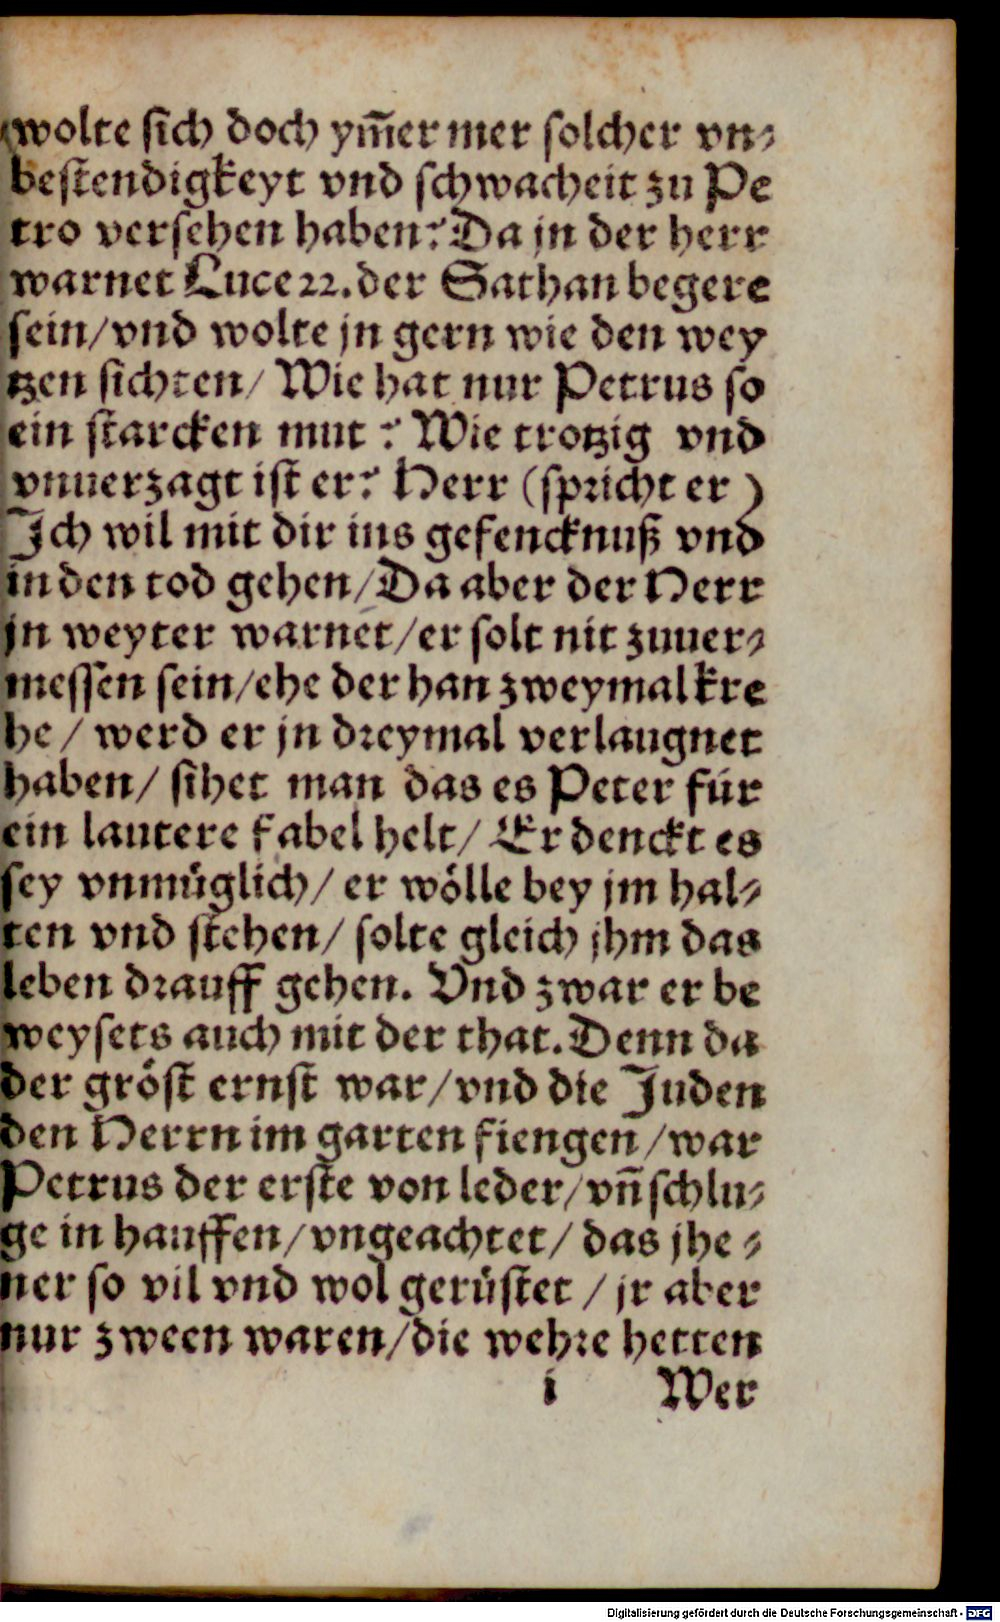 wolte sich doch ym̃er mer solcher vn⸗
bestendigkeyt vnd schwacheit zu Pe
tro versehen haben? Da jn der herr
warnet Luce 22. der Sathan begere
sein/vnd wolte jn gern wie den wey
tzen sichten/ Wie hat nur Petrus so
ein starcken mut ? Wie trotzig vnd
vnuerzagt ist er? Herr (spricht er)
Ich wil mit dir ins gefencknuß vnd
in den tod gehen/Da aber der Herr
jn weyter warnet/er solt nit zuuer⸗
messen sein/ehe der han zweymal kre
he / werd er jn dreymal verlaugnet
haben/ sihet man das es Peter für
ein lautere fabel helt/ Er denckt es
sey vnmüglich/ er wölle bey jm hal⸗
ten vnd stehen/ solte gleich jhm das
leben drauff gehen. Vnd zwar er be
weysets auch mit der that. Denn da
der gröst ernst war/vnd die Juden
den Herrn im garten fiengen/war
Petrus der erste von leder/vñ schlu⸗
ge in hauffen/vngeachtet/ das jhe⸗
ner so vil vnd wol gerüstet / jr aber
nur zween waren/die wehre hetten
i Wer
Digitalisierung gefördert durch die Deutsche Forschungsgemeinschaft - DFG